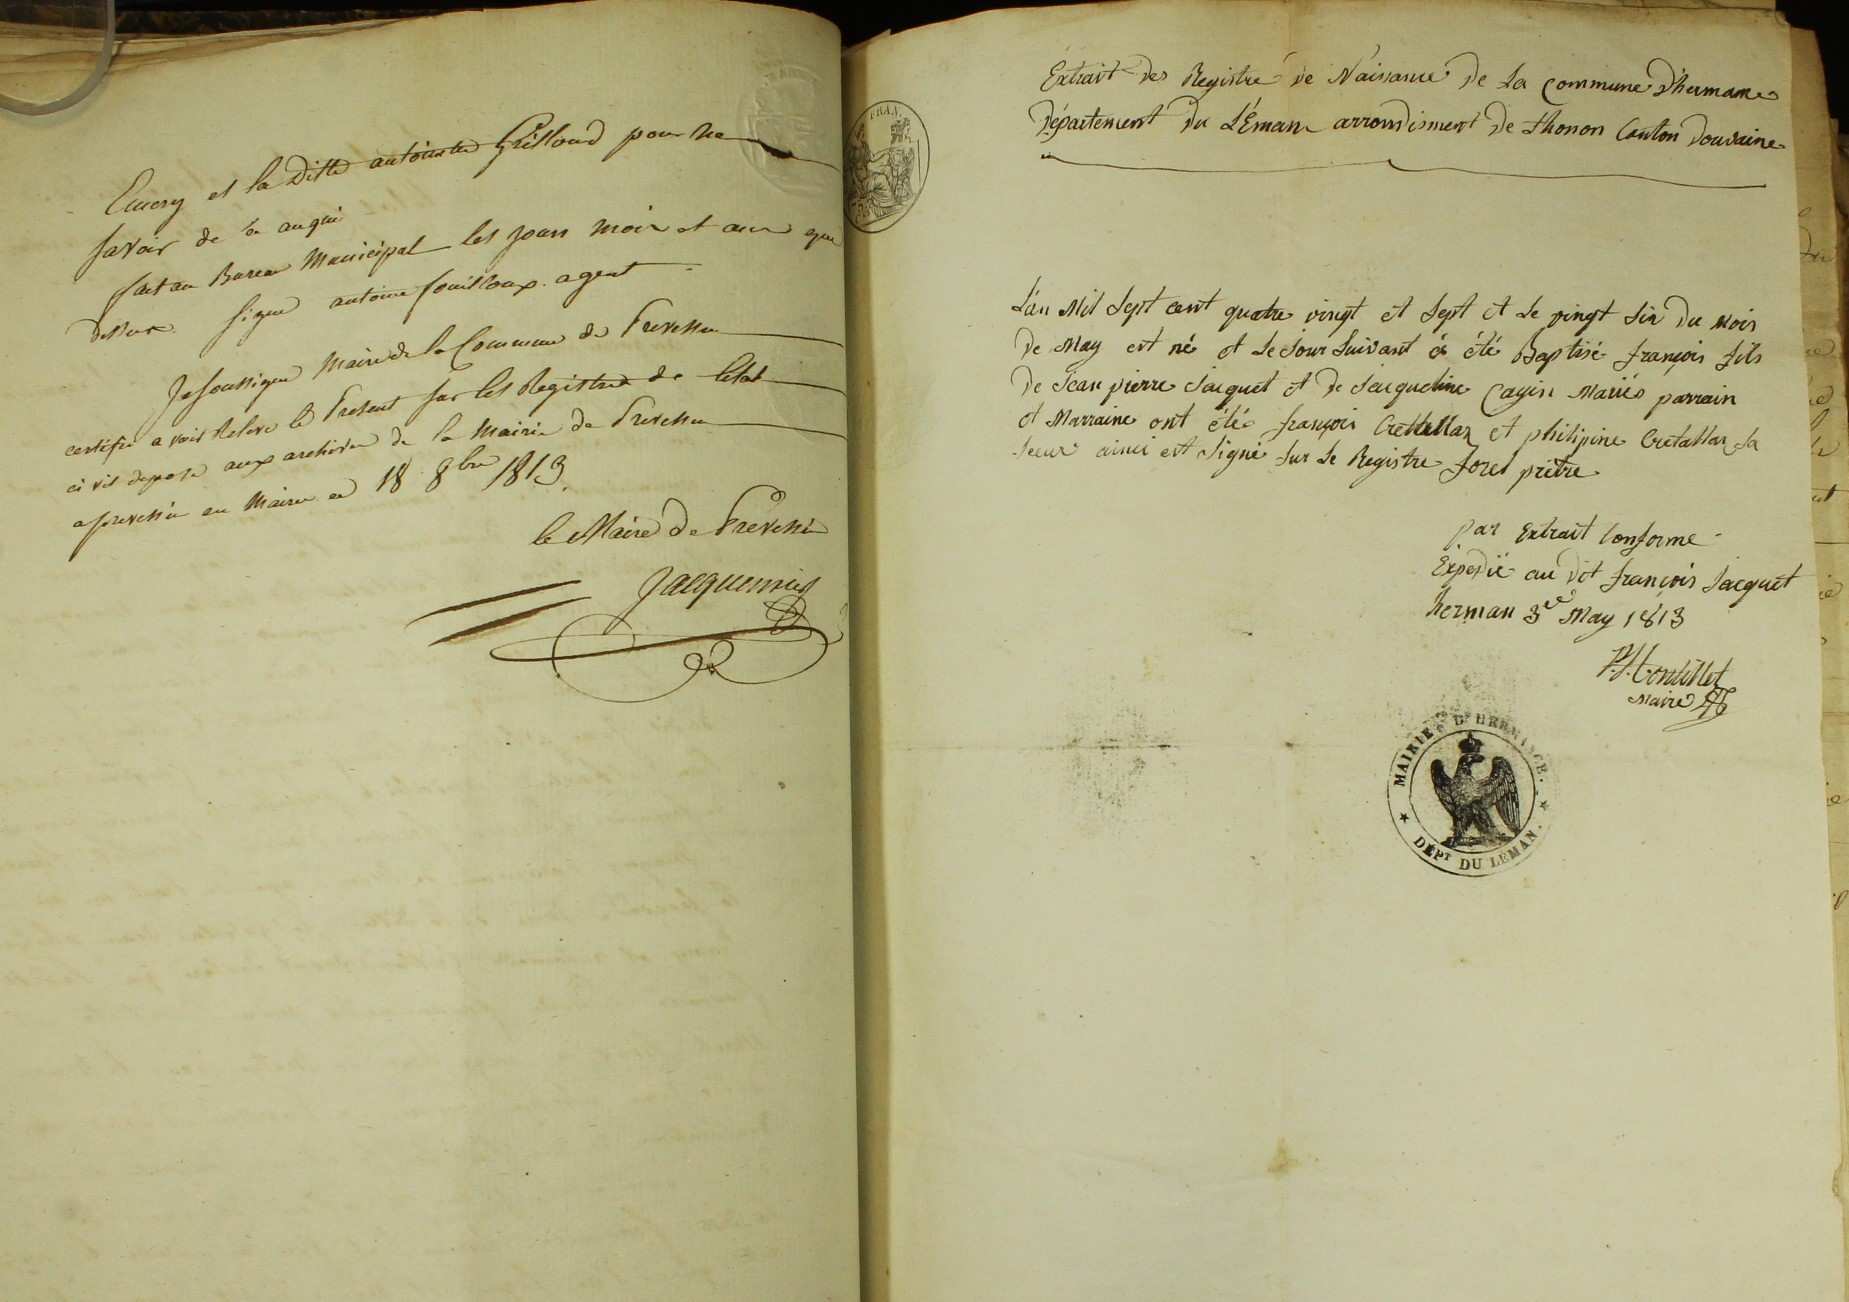 Emery et la ditte antoinette Grilloud pour ne
savoir de ce enquis
fait au Bureau Municipal les jours mois et an que
dessus signé antoine fouilloux agent
Je soussigné Maire de la Commune de Prevessin
certifie avoir Relevé le Present sur les Registres de letat
civil deposé aux archives de la Mairie de Prevessin
a prevessin en Mairie ce 18 8bre 1813.
le Maire de Prévessin
Jacquemier
FRAN
Extrait des Registre de Naissance de La Commune d'herman
Département du LÉman arrondisment de thonon Canton douvaine
L'an Mil Sept cent quatre vingt et Sept et Le vingt Six du Mois
de May est né et Le Jour Suivant à été Baptisé françois fils
de Jean pierre Jacquet et de Jacqueline Mariés parrain
et Marraine ont été françois Crettallaz et philipine Cretallaz Sa
Seeur ainci est Signé Sur Le Registre forel prêtre
par Extrait Conforme
Expedié au dit françois Jacquet
herman 3ee May 1813
Maire
MAIRIE D'HERMANCE.
DÉPT DU LEMAN.